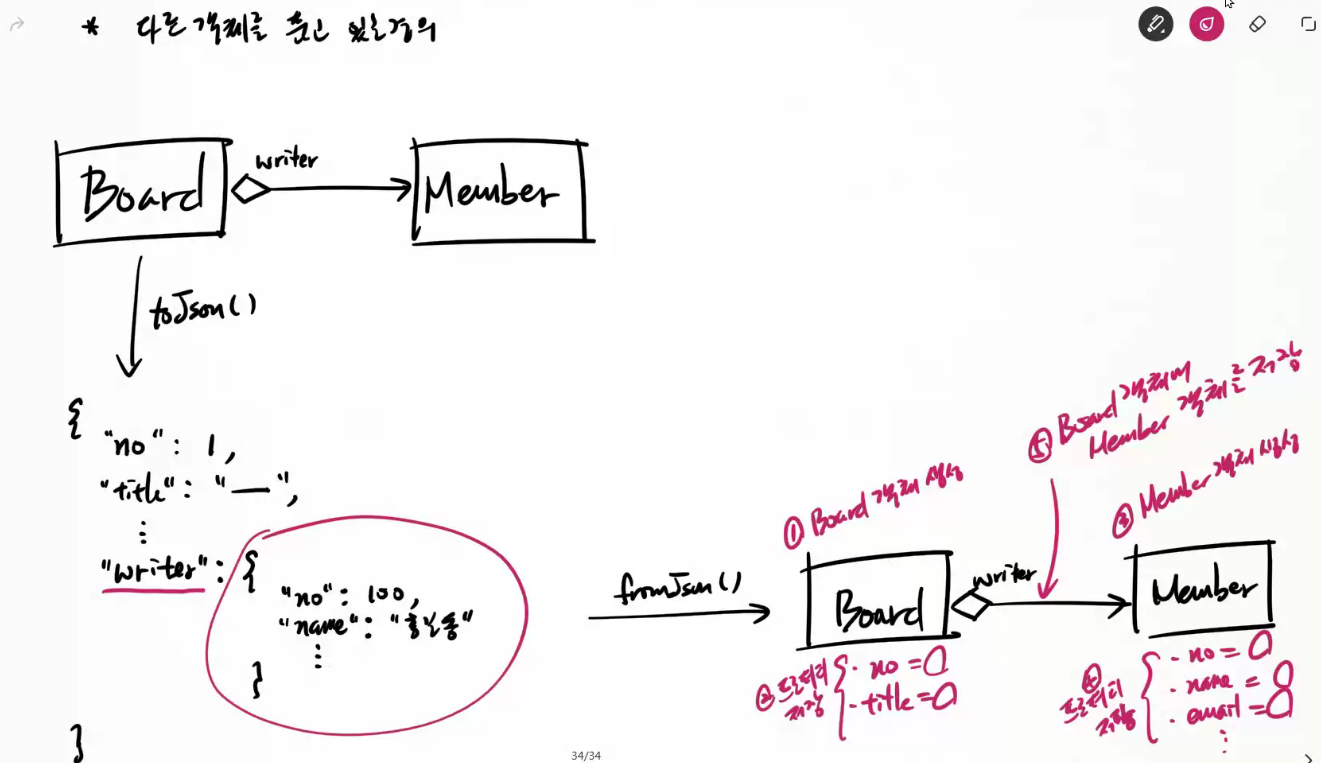 * 다른 객체를 품고 있을 경우
writer
Board
Member
toJson()
{
"no": 1,
"title": "—",
⋮
"writer": {
"no": 100,
"name": "홍길동"
⋮
}
}
fromJson()
① Board 객체 생성
Board
writer
Member
② 프로퍼티
저장
- no =
- title =
③ Member 객체 생성
④
프로퍼티
저장
- no =
- name =
- email =
⋮
⑤ Board 객체에
Member 객체를 저장
34/34